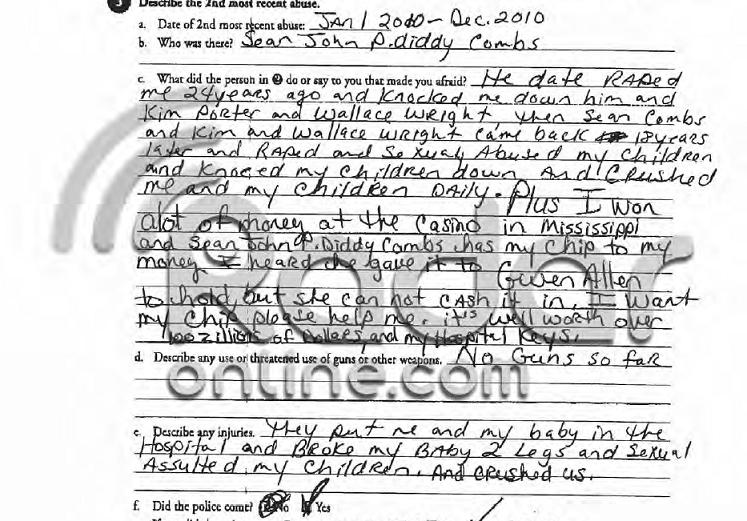 3 Describe the 2nd most recent abuse.
a. Date of 2nd most recent abuse: JAN 1 2010 - Dec. 2010
b. Who was there? Sean John P. diddy Combs
c. What did the person in 2 do or say to you that made you afraid? He date RAPed
me 24 years ago and Knocked me down him and
Kim Porter and Wallace Wright, then Sean Combs
and Kim and Wallace Wright came back 18 years
later and RAPed and Sexualy Abused my children
and Knoced my Children down And CRushed
me and my children DAily. Plus I Won
alot of money at the Casino in Mississippi
and Sean John P. Diddy Combs has my Chip to my
money I heard he gave it to Gwen Allen
to hold, but she can not CASH it in, I want
my Chip please help me. it's well worth over
100 zillions of Dollars and my Hospital Keys.
d. Describe any use or threatened use of guns or other weapons. No Guns so far
e. Describe any injuries. They put me and my baby in the
Hospital and BRoke my BAby 2 Legs and Sexual
Assulted my children. And CRushed us.
f. Did the police come? No Yes
Radar
online.com